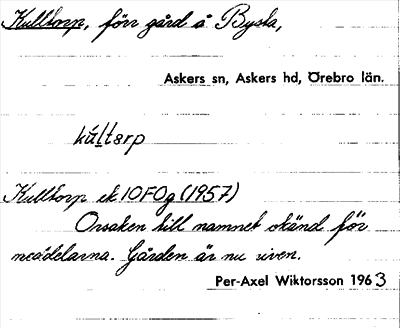 Kulltorp, förr gård å Bysta,
Askers sn, Askers hd, Örebro län.
kúltərp
Kulltorp ek 10F0g (1957)
Orsaken till namnet okänd för
meddelarna. Gården är nu riven.
Per-Axel Wiktorsson 1963